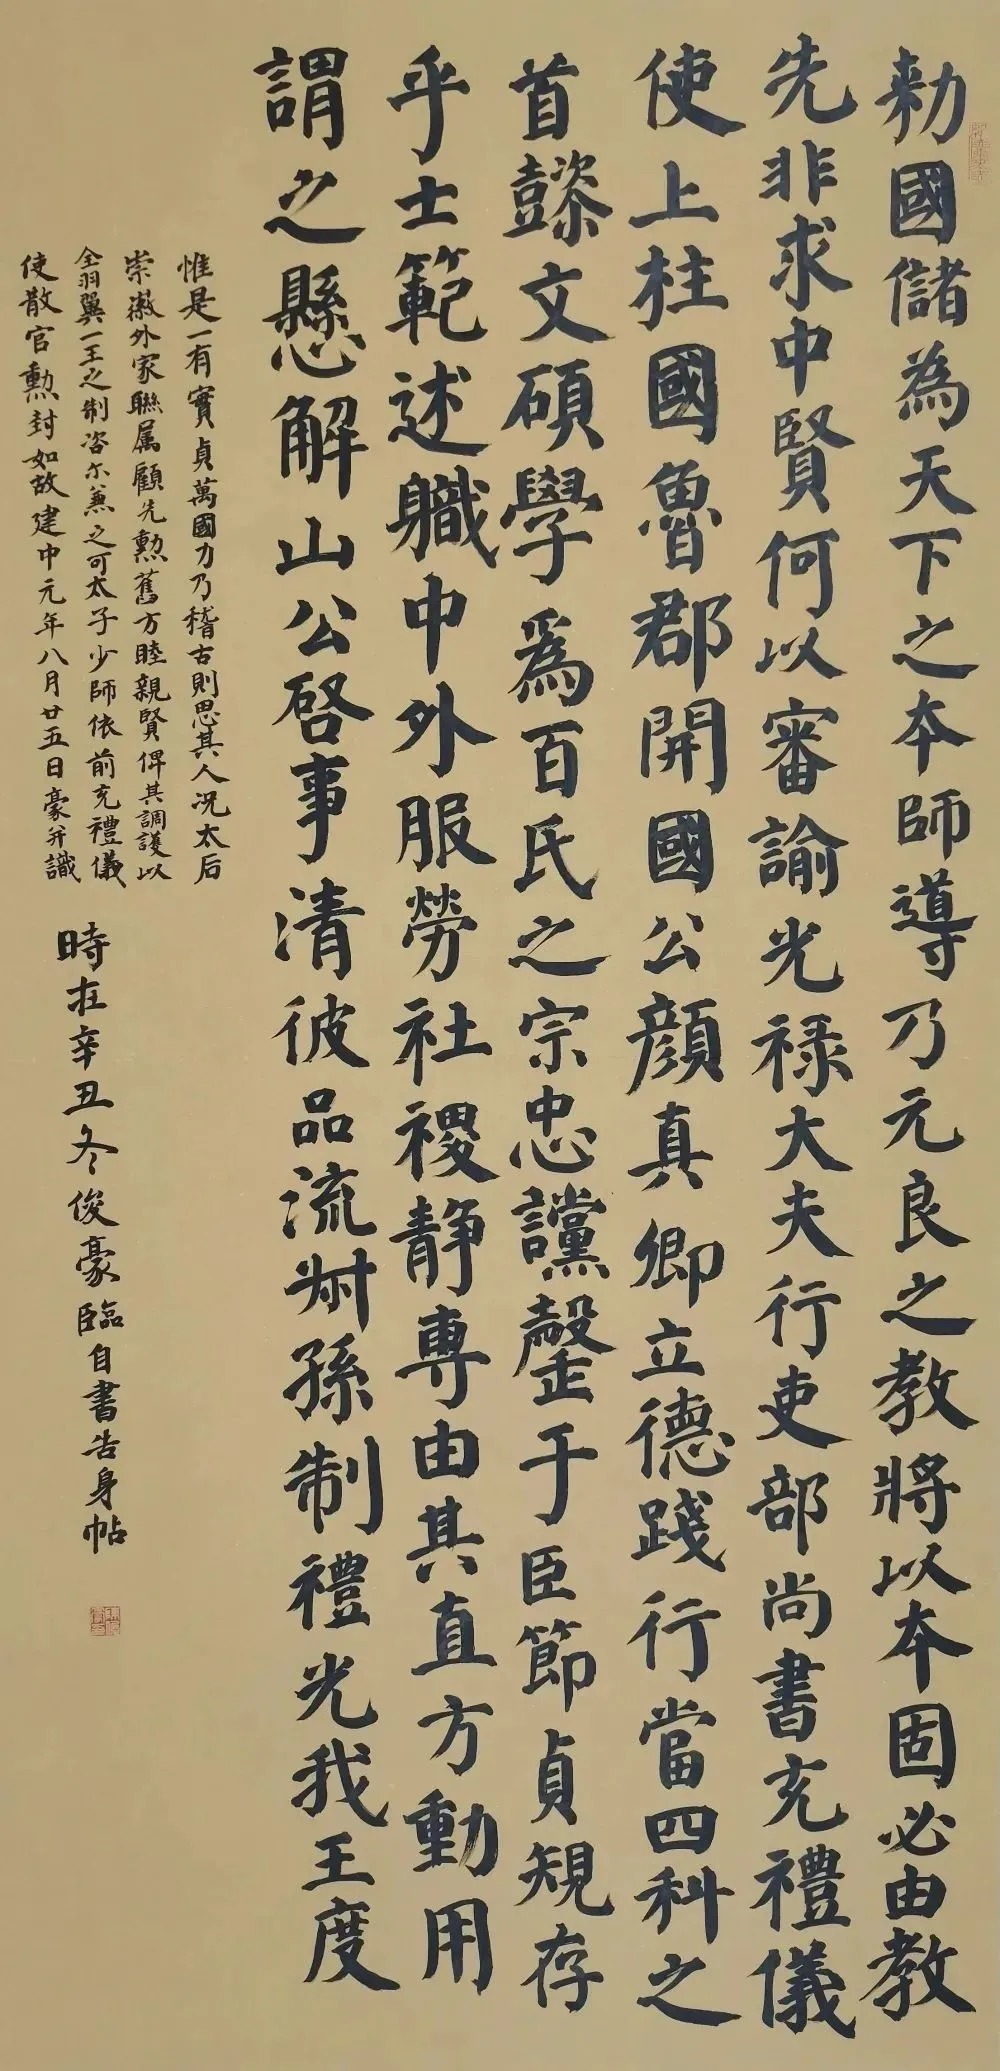 勑國儲為天下之本師導乃元良之教將以本固必由教
先非求中賢何以審諭光禄大夫行吏部尚書充禮儀
使上柱國魯郡開國公顔真卿立德踐行當四科之
首懿文碩學為百氏之宗忠讜罄于臣節貞規存
乎士範述職中外服勞社稷静專由其直方動用
謂之懸解山公啓事清彼品流叔孫制禮光我王度
惟是一有實貞萬國力乃稽古則思其人况太后
崇徽外家聯属顧先勲舊方睦親賢俾其調護以
全羽翼一王之制咨尔兼之可太子少師依前充禮儀
使散官勲封如故建中元年八月廿五日豪并識
時在辛丑冬俊豪臨自書告身帖